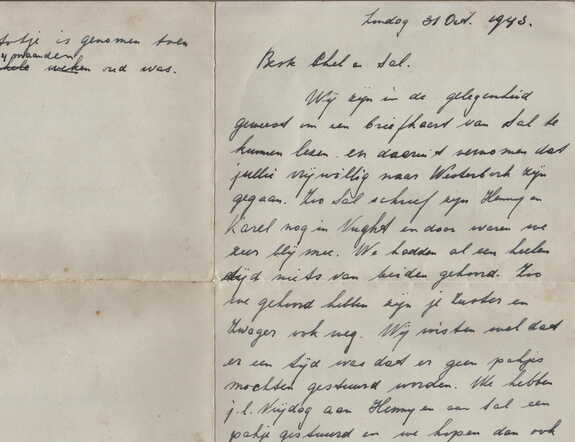 fotje is genomen toen
maanden
weken oud was.
Zondag 31 Oct. 1943.
Beste Chel en Sal.
Wij zijn in de gelegenheid
geweest om een briefkaart van Sal te
kunnen lezen en daaruit vernomen dat
jullie vrijwillig naar Westerbork zijn
gegaan. Zoo Sal schreef zijn Henny en
Karel nog in Vught en daar waren we
zeer blij mee. We hadden al een heelen
tijd niets van beiden gehoord. Zoo
we gehoord hebben zijn je Zuster en
Zwager ook weg. Wij wisten wel dat
er een tijd was dat er geen pakjes
mochten gestuurd worden. We hebben
j.l. Vrijdag aan Henny en aan Sal een
pakje gestuurd en we hopen dan ook